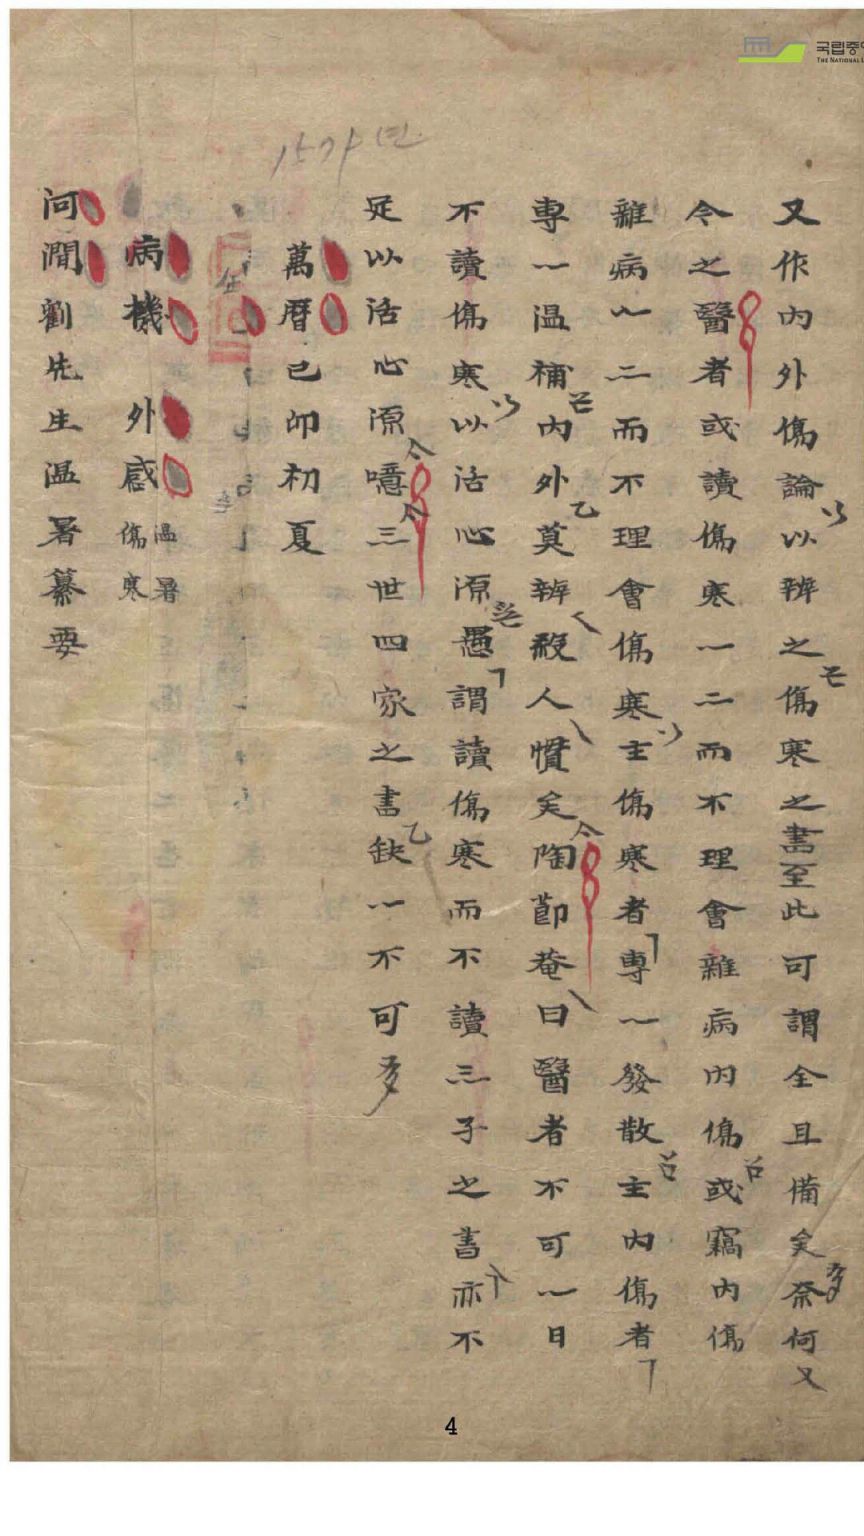 국립중
THE NATIONAL L
又作內外傷論以辨之傷寒之書至此可謂全且備矣奈何
今之醫者或讀傷寒一二而不理會雜病內傷或竊內傷
雜病一二而不理會傷寒主傷寒者專一發散主內傷者
專一溫補內外莫辨殺人慣矣陶節菴曰醫者不可一日
不讀傷寒以活心源愚謂讀傷寒而不讀三子之書亦不
足以活心源噫三世四家之書缺一不可
萬曆己卯初夏
病機 外感 溫暑 傷寒
河澗劉先生溫暑纂要
4